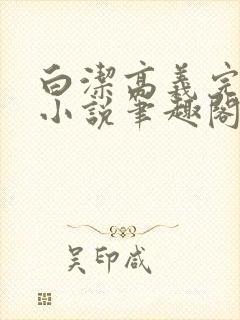 白潔高義完
小説筆趣閣
吴印咸